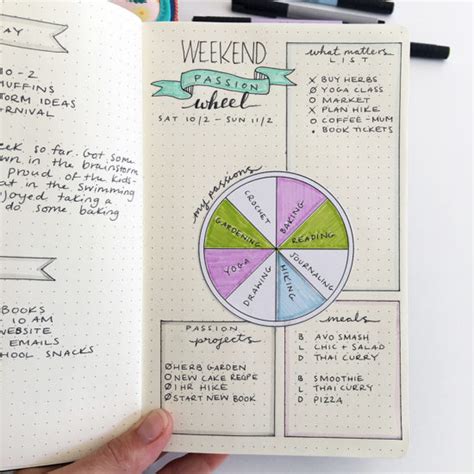 AY
0-2
UFFINS
STORM IDEAS
RNIVAL
EEK SO FAR. GOT SOME
OWN IN THE BRAINSTORM
PROUD OF THE KIDS-
AT IN THE SWIMMING
JOYED TAKING A
DO SOME BAKING
BOOKS
- 10 AM
WEBSITE
EMAILS
HOOL SNACKS
WEEKEND
PASSION
wheel
SAT 10/2 - SUN 11/2
what matters
LIST
X BUY HERBS
Ø YOGA CLASS
O MARKET
X PLAN HIKE
O COFFEE-MUM
• BOOK TICKETS
my passions
CROCHET
BAKING
READING
JOURNALING
HIKING
DRAWING
YOGA
GARDENING
PASSION
projects
Ø HERB GARDEN
O NEW CAKE RECIPE
Ø 1HR HIKE
Ø START NEW BOOK
meals
B AVO SMASH
L CHIC + SALAD
D THAI CURRY
B SMOOTHIE
L THAI CURRY
D PIZZA